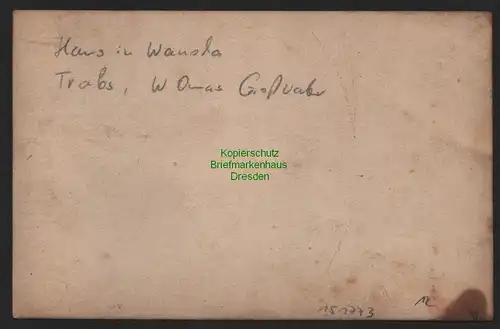 Haus in Wansla
Trabs, W Omas Großvater
Kopierschutz
Briefmarkenhaus
Dresden
151773
12